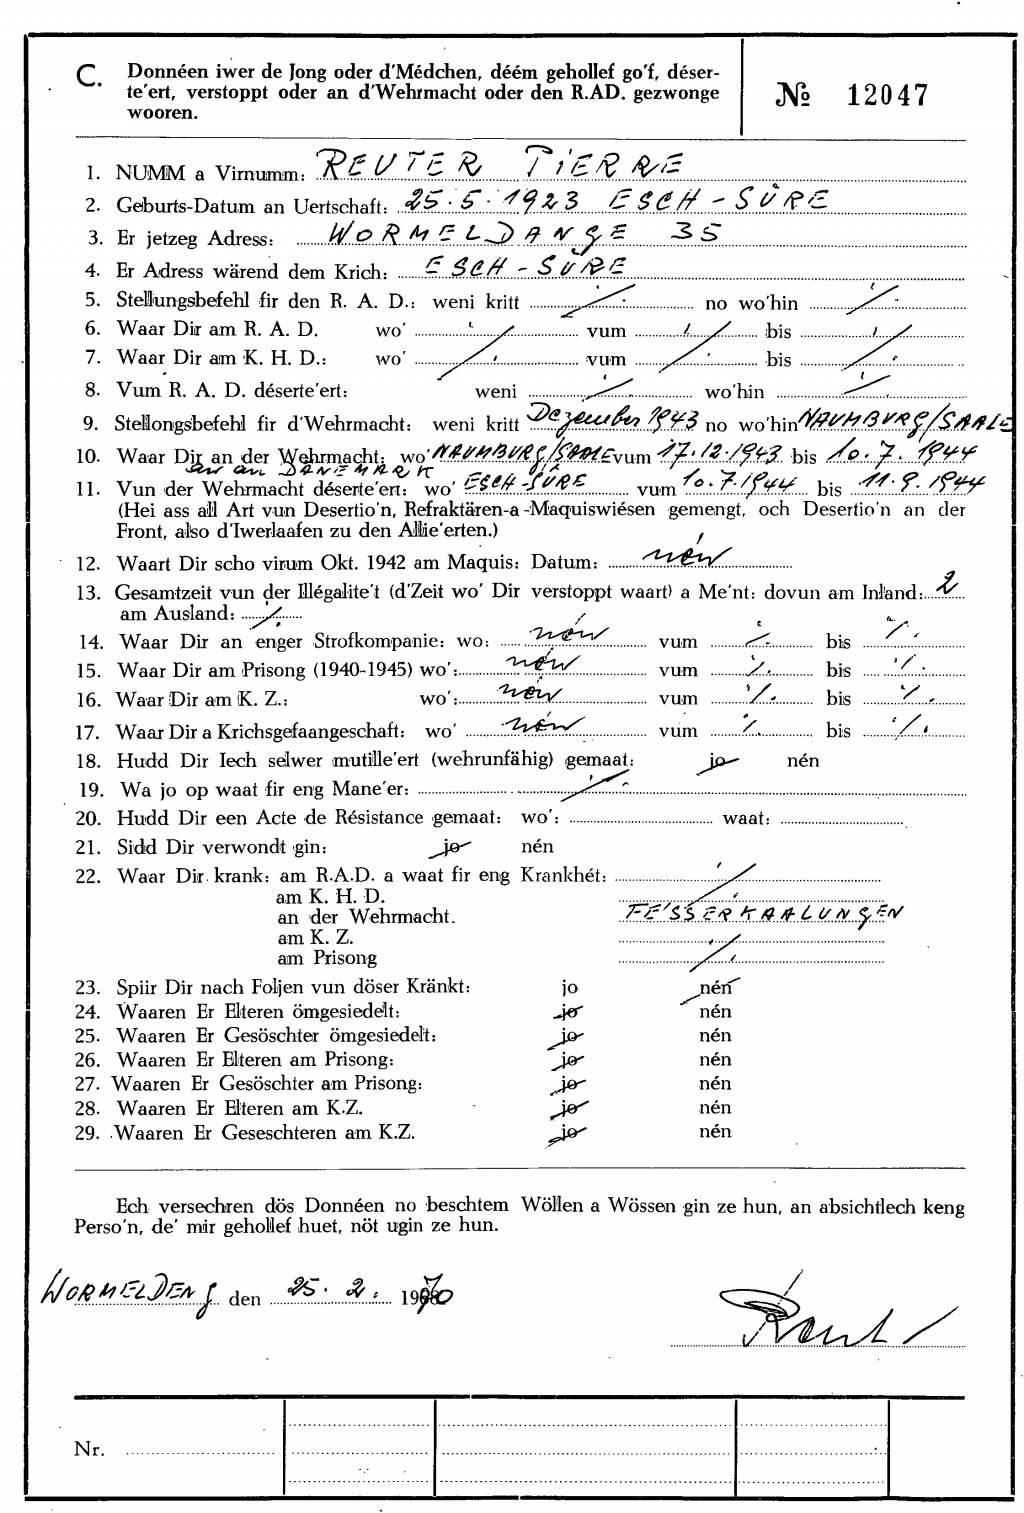 C. Donnéen iwer de Jong oder d'Médchen, déém gehollef go'f, déser-
te'ert, verstoppt oder an d'Wehrmacht oder den R.AD. gezwonge
wooren.
№ 12047
1. NUMM a Virnumm: REUTER PIERRE
2. Geburts-Datum an Uertschaft: 25.5.1923 ESCH-SÛRE
3. Er jetzeg Adress: WORMELDANGE 35
4. Er Adress wärend dem Krich: ESCH-SÛRE
5. Stellungsbefehl fir den R. A. D.: weni kritt ./. no wo'hin ./.
6. Waar Dir am R. A. D. wo' ./. vum ./. bis ./.
7. Waar Dir am K. H. D.: wo' ./. vum ./. bis ./.
8. Vum R. A. D. déserte'ert: weni ./. wo'hin ./.
9. Stellongsbefehl fir d'Wehrmacht: weni kritt Dezember 1943 no wo'hin NAUMBURG/SAALE
10. Waar Dir an der Wehrmacht: wo' NAUMBURG/SAALE vum 17.12.1943 bis 10.7.1944
an DÄNEMARK
11. Vun der Wehrmacht déserte'ert: wo' ESCH-SÛRE vum 10.7.1944 bis 11.9.1944
(Hei ass all Art vun Desertio'n, Refraktären-a-Maquiswiésen gemengt, och Desertio'n an der
Front, also d'Iwerlaafen zu den Allie'erten.)
12. Waart Dir scho virum Okt. 1942 am Maquis: Datum: nén
13. Gesamtzeit vun der Illégalite't (d'Zeit wo' Dir verstoppt waart) a Me'nt: dovun am Inland: 2
am Ausland: ./.
14. Waar Dir an enger Strofkompanie: wo: nén vum ./. bis ./.
15. Waar Dir am Prisong (1940-1945) wo': nén vum ./. bis ./.
16. Waar Dir am K. Z.: wo': nén vum ./. bis ./.
17. Waar Dir a Krichsgefaangeschaft: wo' nén vum ./. bis ./.
18. Hudd Dir Iech selwer mutille'ert (wehrunfähig) gemaat: jo nén
19. Wa jo op waat fir eng Mane'er: ./.
20. Hudd Dir een Acte de Résistance gemaat: wo': waat:
21. Sidd Dir verwondt gin: jo nén
22. Waar Dir krank: am R.A.D. a waat fir eng Krankhét: ./.
am K. H. D.
an der Wehrmacht. FE'SSERKAALUNGEN
am K. Z.
am Prisong ./.
23. Spiir Dir nach Foljen vun döser Kränkt: jo nén
24. Waaren Er Elteren ömgesiedelt: jo nén
25. Waaren Er Gesöschter ömgesiedelt: jo nén
26. Waaren Er Elteren am Prisong: jo nén
27. Waaren Er Gesöschter am Prisong: jo nén
28. Waaren Er Elteren am K.Z. jo nén
29. Waaren Er Geseschteren am K.Z. jo nén
Ech versechren dös Donnéen no beschtem Wöllen a Wössen gin ze hun, an absichtlech keng
Perso'n, de' mir gehollef huet, nöt ugin ze hun.
WORMELDENG den 25. 2. 1970
Nr.